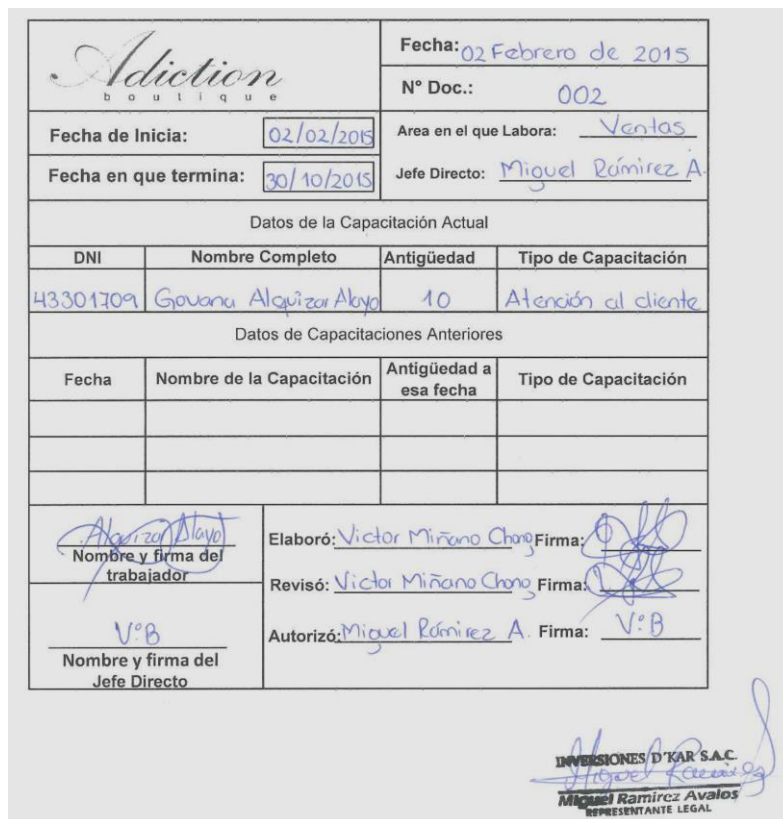 Adiction
boutique
Fecha: 02 Febrero de 2015
N° Doc.: 002
Fecha de Inicia: 02/02/2015
Area en el que Labora: Ventas
Fecha en que termina: 30/10/2015
Jefe Directo: Miguel Ramirez A.
Datos de la Capacitación Actual
DNI Nombre Completo Antigüedad Tipo de Capacitación
43301709 Govana Alquizar Alayo 10 Atención al cliente
Datos de Capacitaciones Anteriores
Fecha Nombre de la Capacitación Antigüedad a esa fecha Tipo de Capacitación
Alquizar Alayo
Nombre y firma del
trabajador
Elaboró: Victor Miñano Chong Firma:
Revisó: Victor Miñano Chong Firma:
V°B
Nombre y firma del
Jefe Directo
Autorizó: Miguel Ramirez A. Firma: V°B
INVERSIONES D'KAR S.A.C.
Miguel Ramirez
Miguel Ramirez Avalos
REPRESENTANTE LEGAL